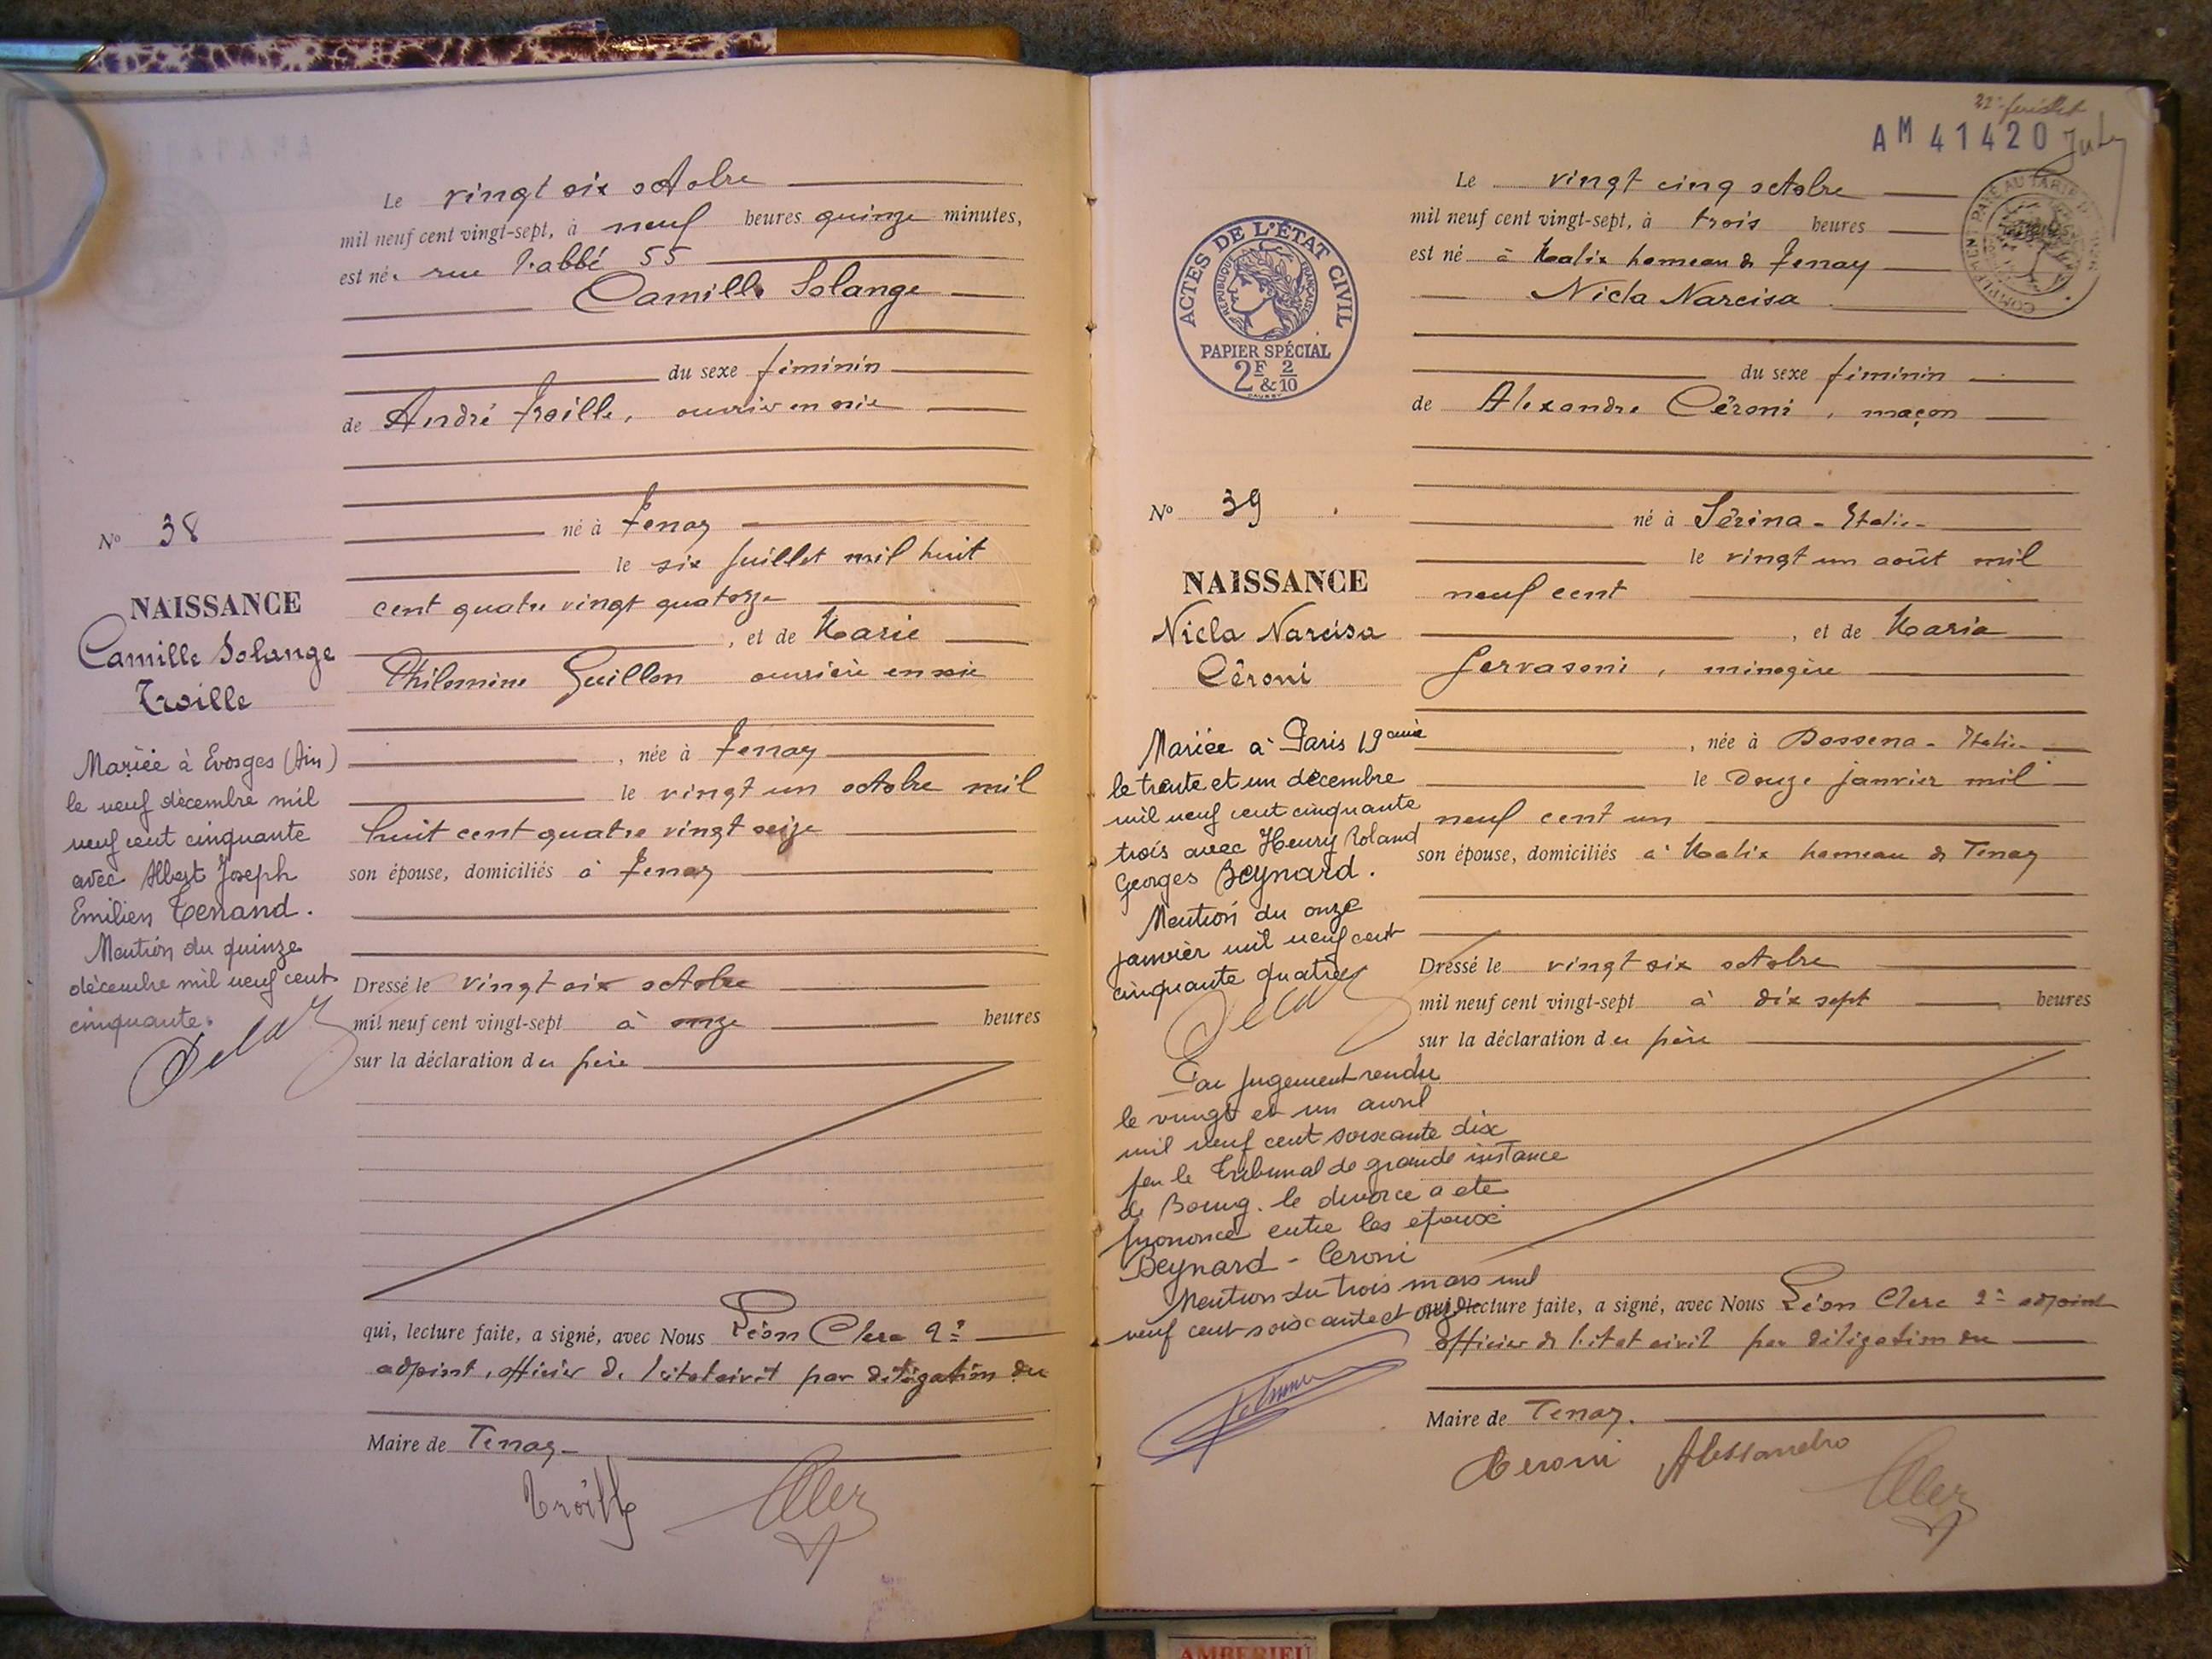 Le vingt six octobre
mil neuf cent vingt-sept, à neuf heures quinze minutes,
est né rue Labbé 55
Camille Solange
du sexe féminin
de André Troille, ouvrier en soie
né à Tenay
le six juillet mil huit
cent quatre vingt quatorze
, et de Marie
Philomène Guillon ouvrière en soie
, née à Tenay
le vingt un octobre mil
huit cent quatre vingt seize
son épouse, domiciliés à Tenay
Dressé le vingt six octobre
mil neuf cent vingt-sept à onze heures
sur la déclaration du père
qui, lecture faite, a signé, avec Nous Léon Clerc 2e
adjoint, officier de l'état civil par délégation du
Maire de Tenay
Troille
No 38
NAISSANCE
Camille Solange
Troille
Mariée à Evosges (Ain)
le neuf décembre mil
neuf cent cinquante
avec Albert Joseph
Emilien Tenand.
Mention du quinze
décembre mil neuf cent
cinquante.
22e feuillet
AM 41420
ACTES DE L'ÉTAT CIVIL
RÉPUBLIQUE FRANÇAISE
PAPIER SPÉCIAL
2F & 2/10
Le vingt cinq octobre
mil neuf cent vingt-sept, à trois heures
est né à Malix hameau de Tenay
Nicla Narcisa
du sexe féminin
de Alexandre Céroni, maçon
né à Sérina - Italie
le vingt un août mil
neuf cent
, et de Maria
Gervasoni, ménagère
, née à Dossena - Italie
le douze janvier mil
neuf cent un
son épouse, domiciliés à Malix hameau de Tenay
Dressé le vingt six octobre
mil neuf cent vingt-sept à dix sept heures
sur la déclaration du père
qui, lecture faite, a signé, avec Nous Léon Clerc 2e adjoint
officier de l'état civil par délégation du
Maire de Tenay.
Ceroni Alessandro
No 39
NAISSANCE
Nicla Narcisa
Céroni
Mariée à Paris 19ème
le trente et un décembre
mil neuf cent cinquante
trois avec Henry Roland
Georges Beynard.
Mention du onze
janvier mil neuf cent
cinquante quatre
Par jugement rendu
le vingt et un avril
mil neuf cent soixante dix
par le Tribunal de grande instance
de Bourg. le divorce a été
prononcé entre les époux
Beynard - Ceroni
Mention du trois mars mil
neuf cent soixante et onze
AMBERIEU